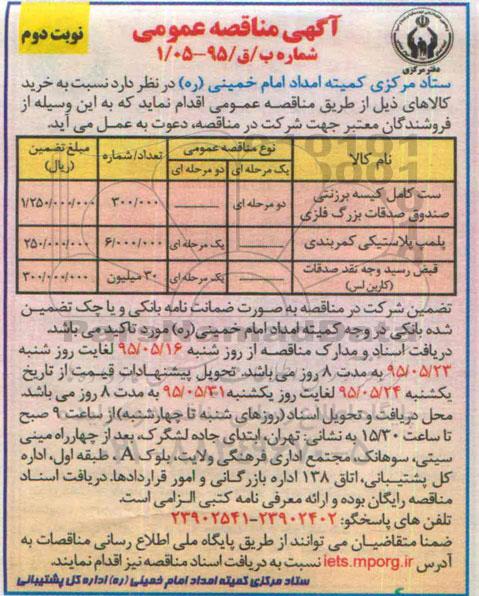 آگهی مناقصه عمومی
نوبت دوم
شماره ب/ق/۹۵-۱/۰۵
دفتر مرکزی
ستاد مرکزی کمیته امداد امام خمینی (ره) در نظر دارد نسبت به خرید
کالاهای ذیل از طریق مناقصه عمومی اقدام نماید که به این وسیله از
فروشندگان معتبر جهت شرکت در مناقصه، دعوت به عمل می آید.
نام کالا نوع مناقصه عمومی تعداد/شماره مبلغ تضمین (ریال)
یک مرحله ای دو مرحله ای
ست کامل کیسه برزنتی صندوق صدقات بزرگ فلزی دو مرحله ای ۳۰۰/۰۰۰ ۱/۲۵۰/۰۰۰/۰۰۰
پلمپ پلاستیکی کمربندی یک مرحله ای ۶/۰۰۰/۰۰۰ ۲۵۰/۰۰۰/۰۰۰
قبض رسید وجه نقد صدقات (کاربن لس) یک مرحله ای ۳۰ میلیون ۳۰۰/۰۰۰/۰۰۰
تضمین شرکت در مناقصه به صورت ضمانت نامه بانکی و یا چک تضمین
شده بانکی در وجه کمیته امداد امام خمینی(ره) مورد تاکید می باشد.
دریافت اسناد و مدارک مناقصه از روز شنبه ۹۵/۰۵/۱۶ لغایت روز شنبه
۹۵/۰۵/۲۳ به مدت ۸ روز می باشد. تحویل پیشنهادات قیمت از تاریخ
یکشنبه ۹۵/۰۵/۲۴ لغایت روز یکشنبه ۹۵/۰۵/۳۱ به مدت ۸ روز می باشد.
محل دریافت و تحویل اسناد (روزهای شنبه تا چهارشنبه) از ساعت ۹ صبح
تا ساعت ۱۵/۳۰ به نشانی: تهران، ابتدای جاده لشگرک، بعد از چهارراه مینی
سیتی، سوهانک، مجتمع اداری فرهنگی ولایت، بلوک A، طبقه اول، اداره
کل پشتیبانی، اتاق ۱۳۸ اداره بازرگانی و امور قراردادها. دریافت اسناد
مناقصه رایگان بوده و ارائه معرفی نامه کتبی الزامی است.
تلفن های پاسخگو: ۲۳۹۰۲۴۰۲-۲۳۹۰۲۵۴۱
ضمنا متقاضیان می توانند از طریق پایگاه ملی اطلاع رسانی مناقصات به
آدرس iets.mporg.ir نسبت به دریافت اسناد مناقصه نیز اقدام نمایند.
ستاد مرکزی کمیته امداد امام خمینی (ره) اداره کل پشتیبانی